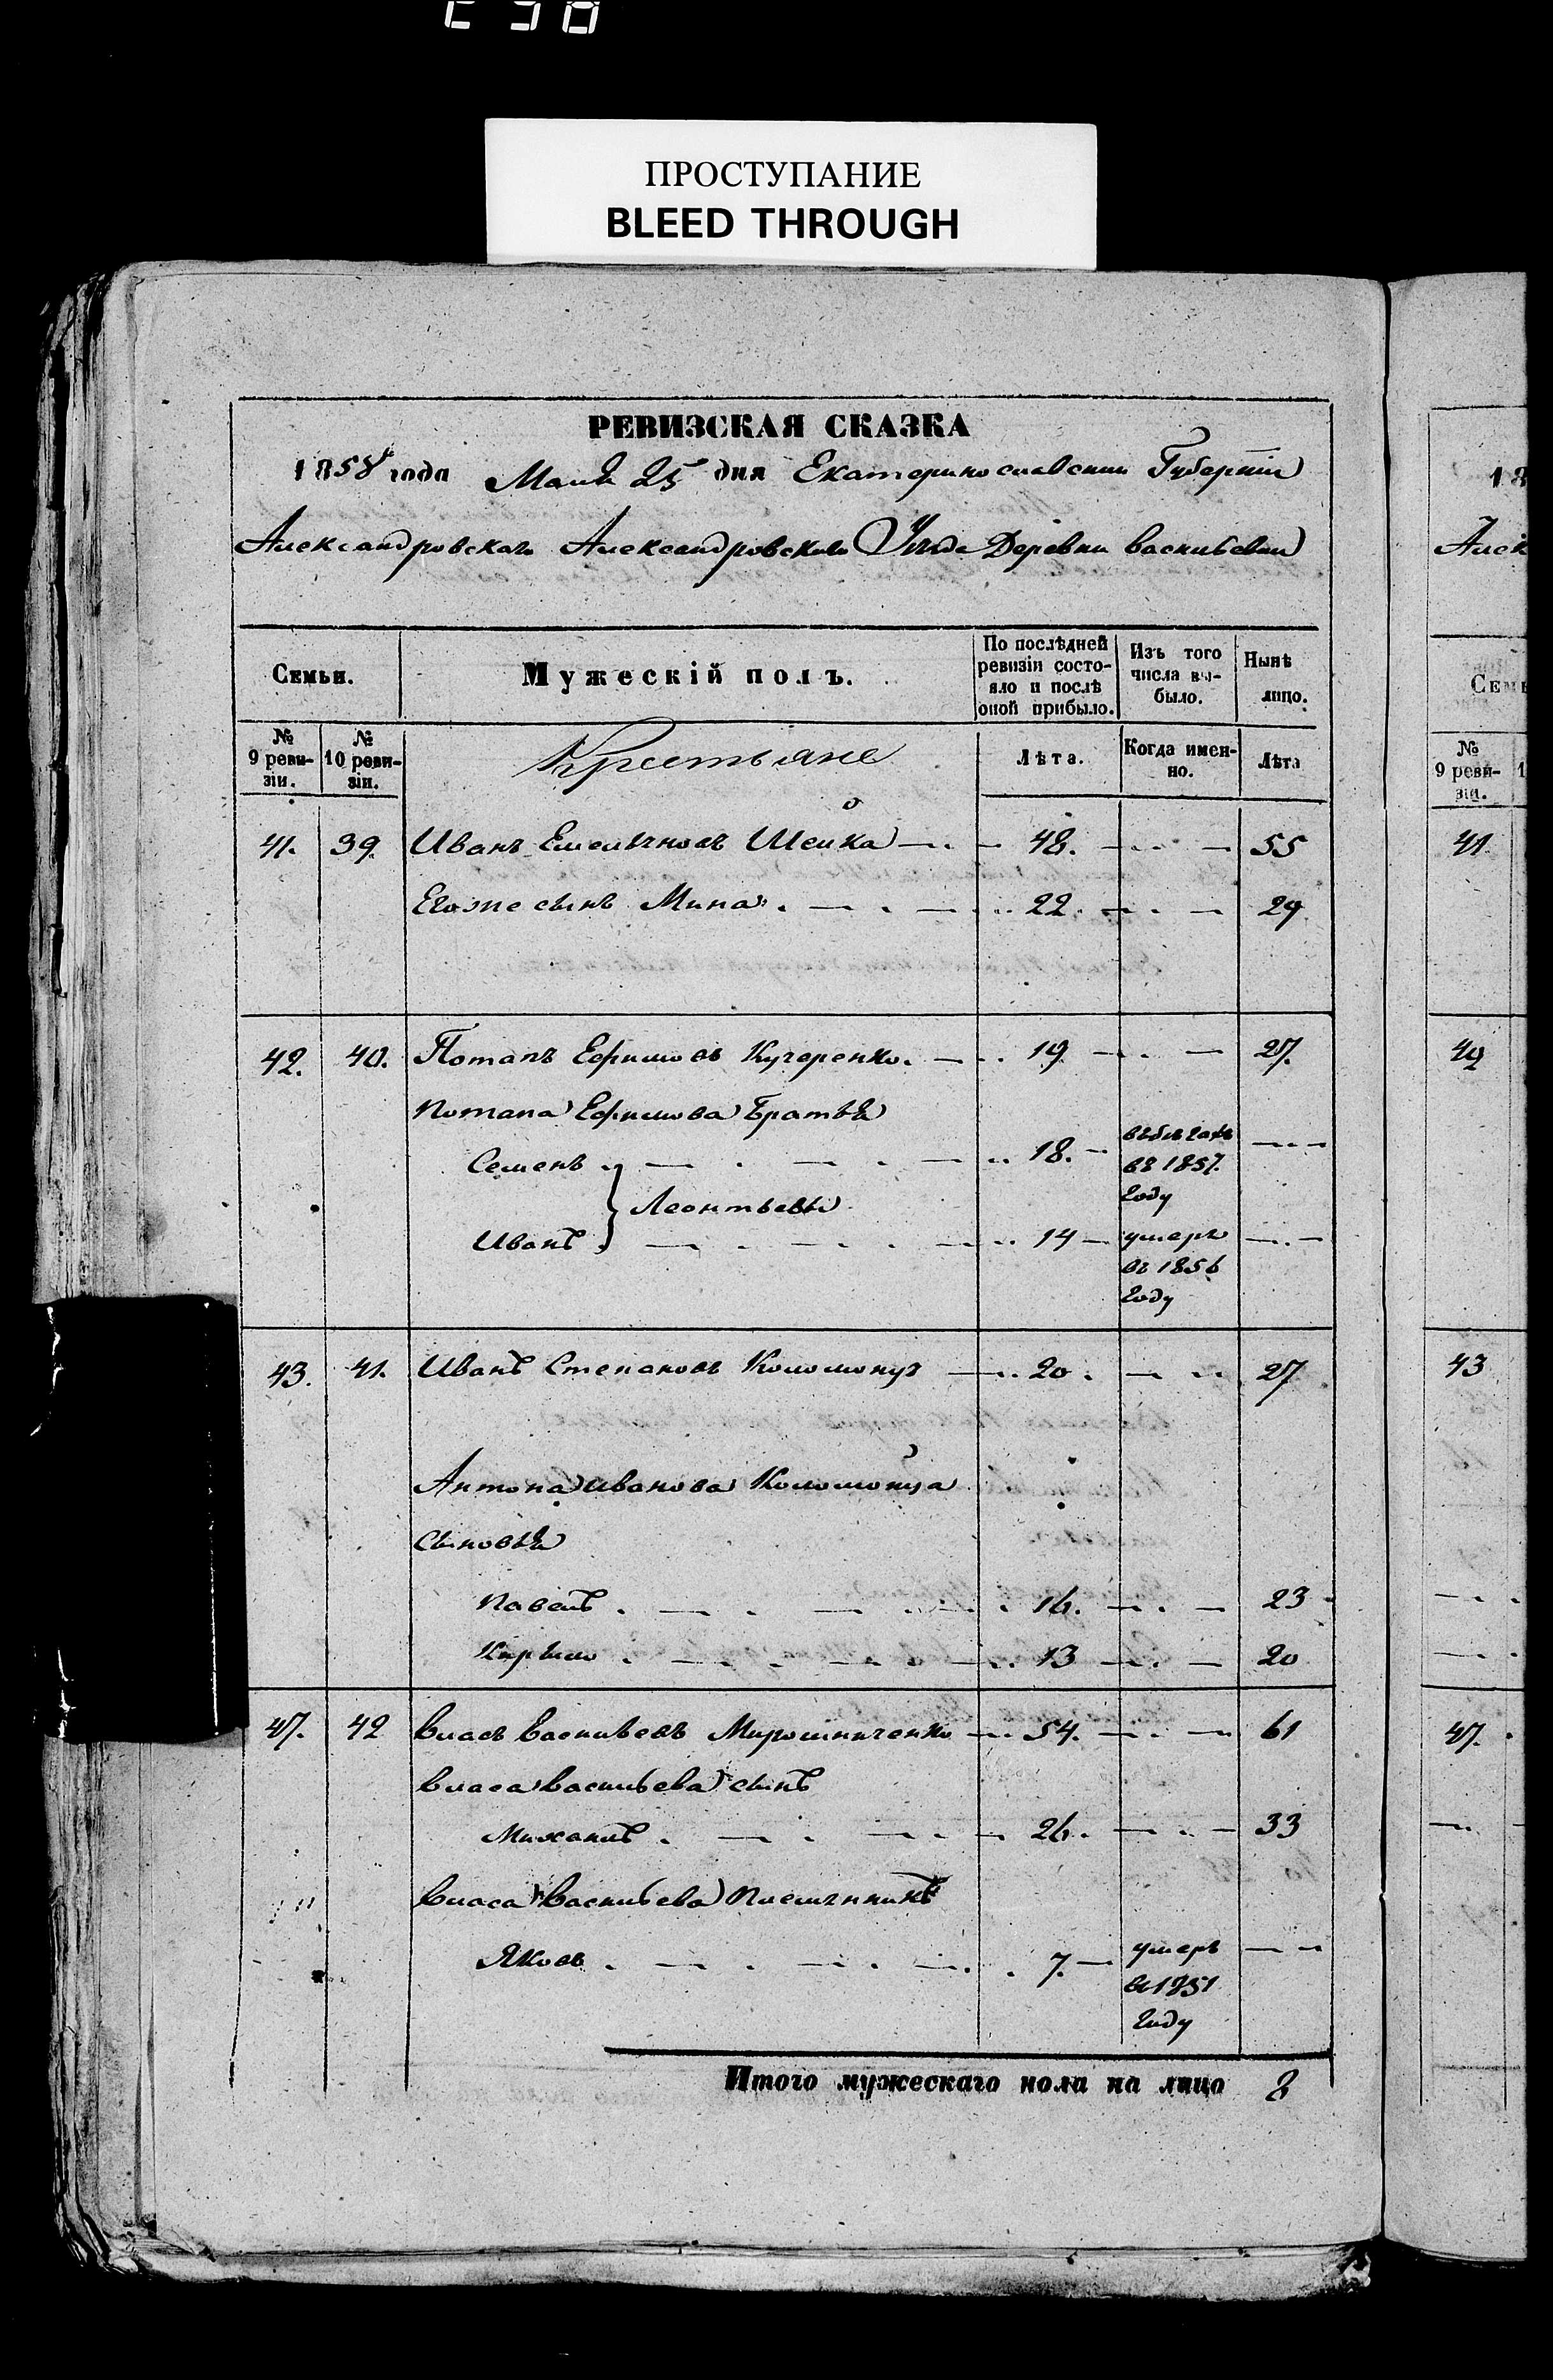 ПРОСТУПАНИЕ
BLEED THROUGH
РЕВИЗСКАЯ СКАЗКА
1858 года Маия 25 дня Екатеринославской Губерніи
Александровскаго Александровского Уезда Деревни Васильевки
Семьи. Мужескій полъ. По послѣдней ревизіи состояло и послѣ оной прибыло. Изъ того числа выбыло. Нынѣ лицо.
№ 9 ревизіи. № 10 ревизіи. Крестьяне Лѣта. Когда именно. Лѣта
41. 39. Иванъ Емельяновъ Шейка 48. 55
Егоже сынъ Мина 22. 29
42. 40. Потапъ Ефимовъ Кучеренко. 19 27.
Потапа Ефимова Братья
Семенъ 18. въ бегахъ въ 1857. году
Леонтьевы
Иванъ 14 умеръ въ 1856 году
43. 41. Иванъ Степановъ Коломоецъ 20. 27
Антона Иванова Коломойца
Сыновья
Павелъ 16. 23
Кирыло 13 20
47. 42 Власъ Васильевъ Мирошниченко 54. 61
Власа Васильева сынъ
Михаилъ 26. 33
Власа Васильева Племянникъ
Яковъ 7. умеръ въ 1851 году
Итого мужескаго пола на лицо 8
18
Алек
Семь
№ 9 ревизіи.
41
42
43
47.